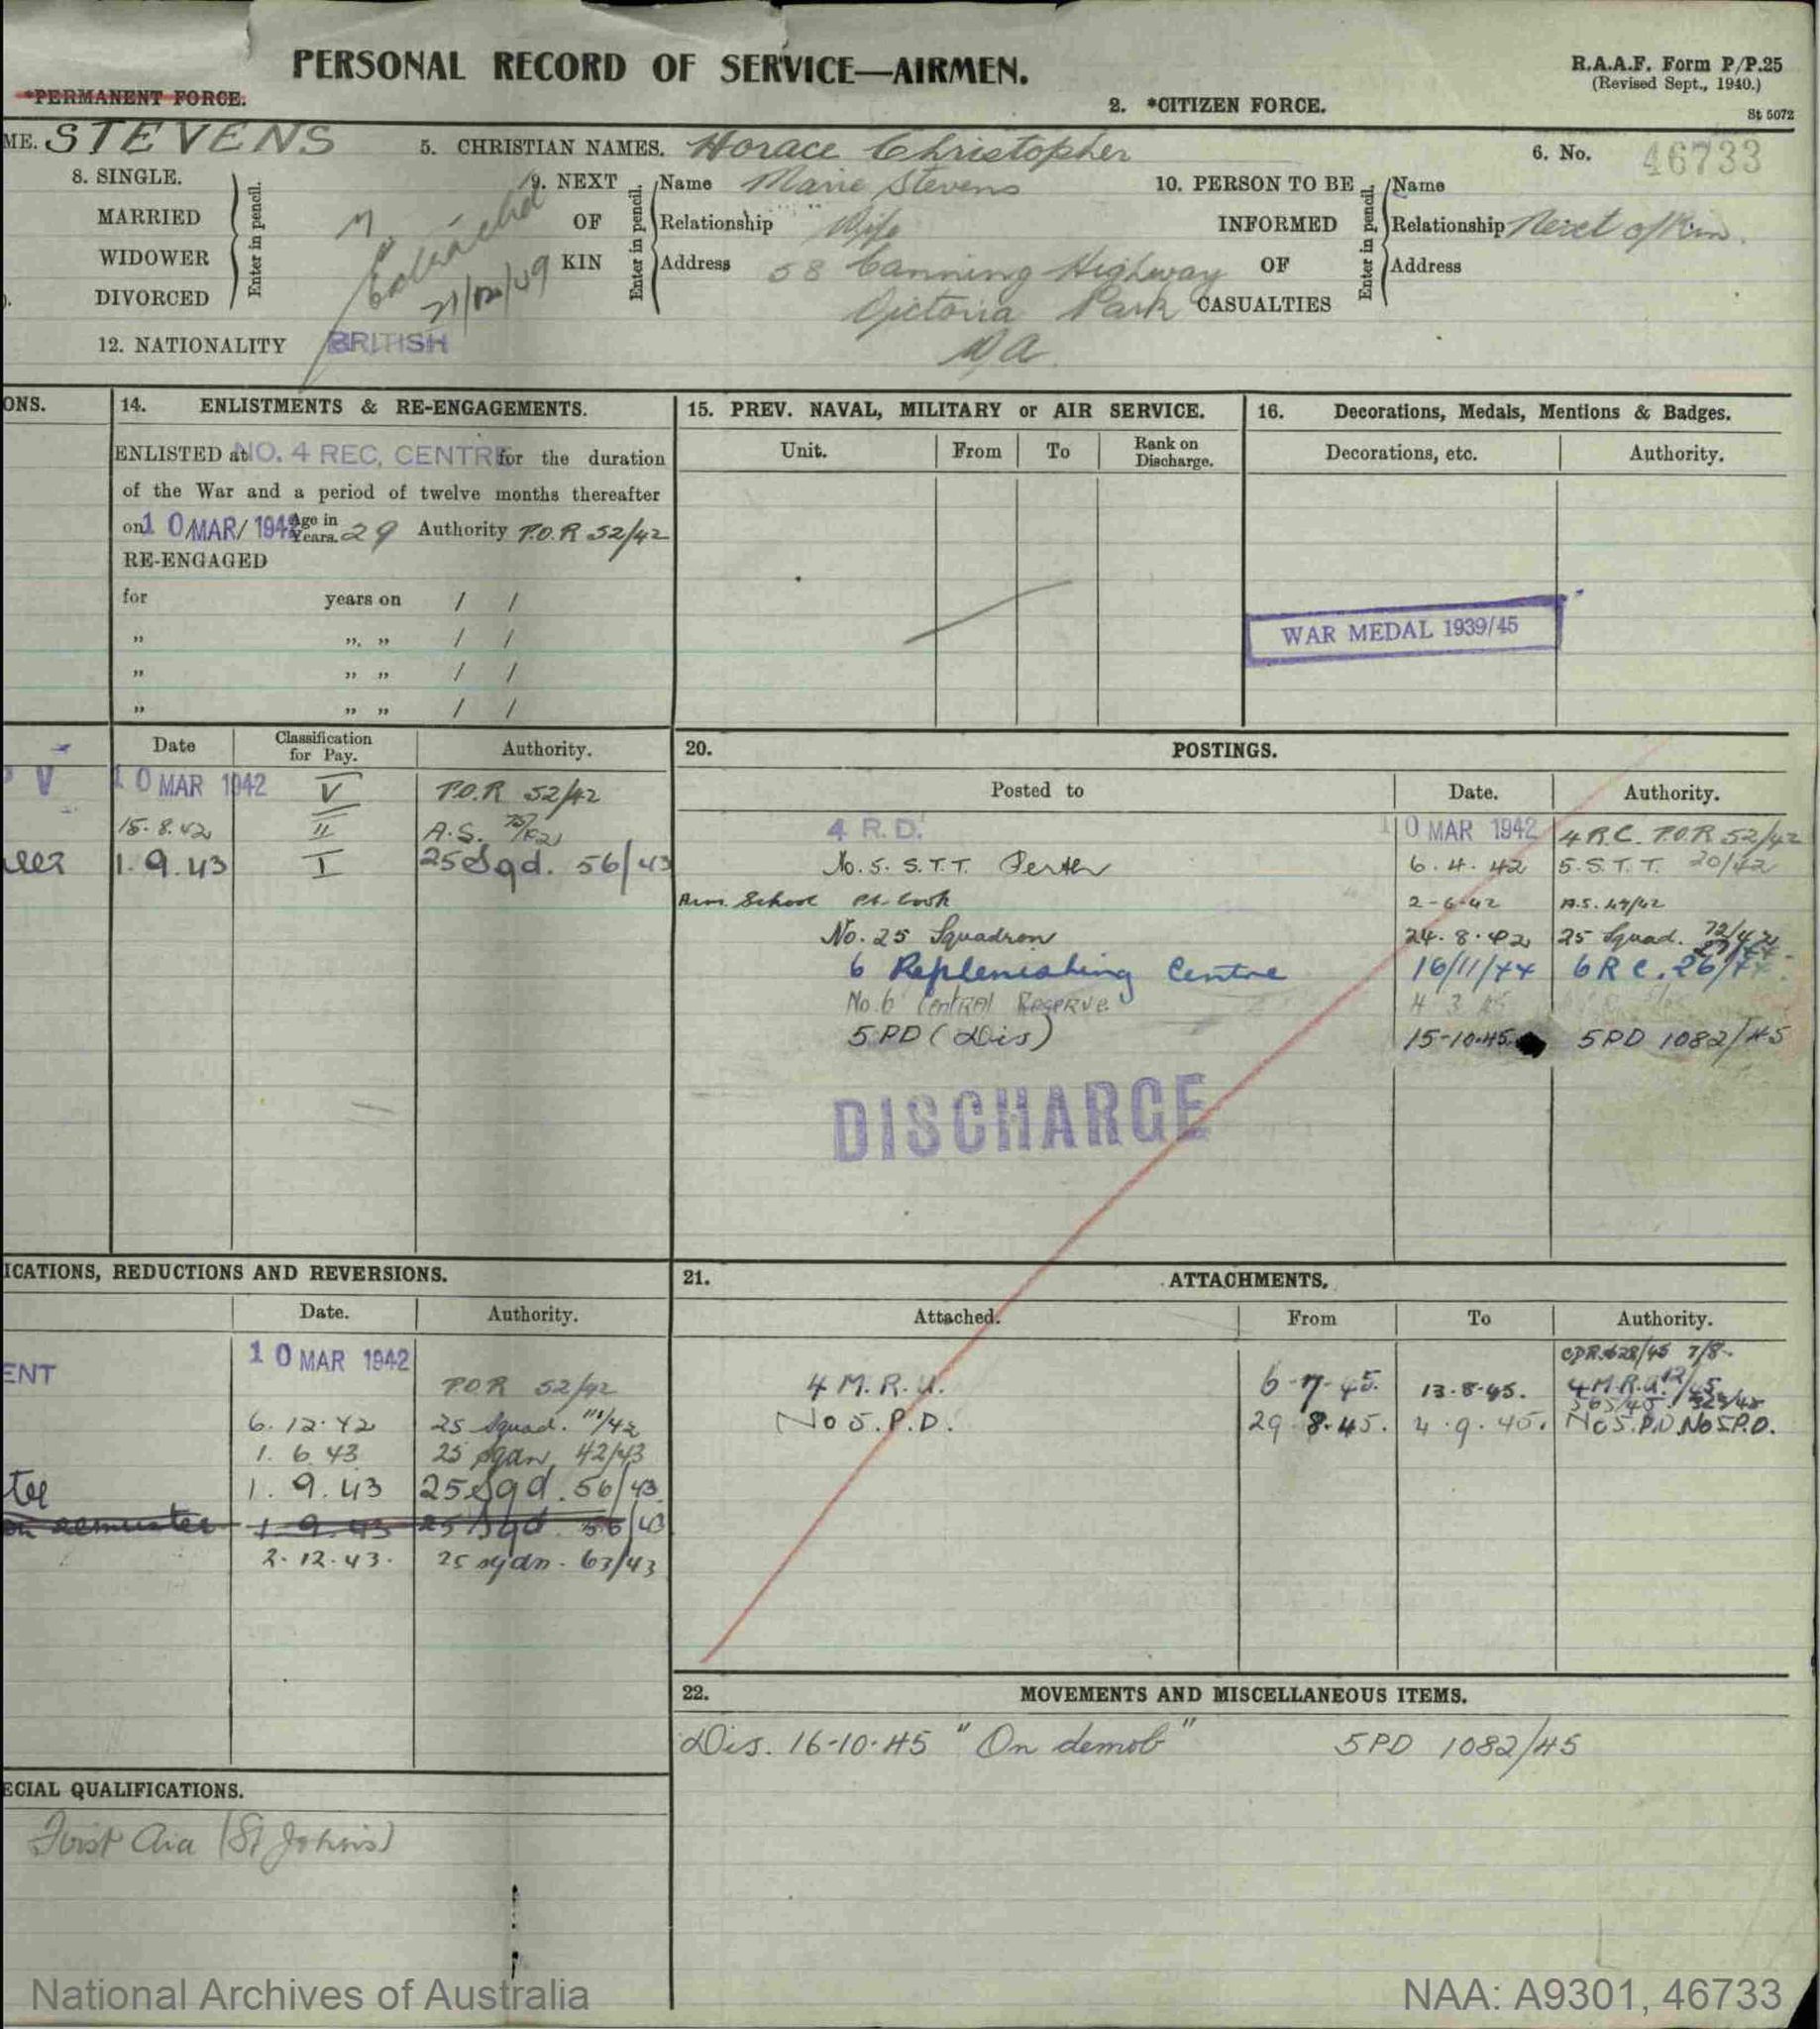 PERSONAL RECORD OF SERVICE—AIRMEN.
R.A.A.F. Form P/P.25
(Revised Sept., 1940.)
St 5072
*PERMANENT FORCE.
2. *CITIZEN FORCE.
ME. STEVENS 5. CHRISTIAN NAMES. Horace Christopher 6. No. 46733
8. SINGLE.
MARRIED
WIDOWER
DIVORCED
Enter in pencil.
M
Extracted
21/10/49
9. NEXT OF KIN
Enter in pencil.
Name Marie Stevens
Relationship Wife
Address 58 Canning Highway
Victoria Park
WA
10. PERSON TO BE INFORMED OF CASUALTIES
Enter in pencil.
Name
Relationship Next of Kin.
Address
12. NATIONALITY BRITISH
ONS.
14. ENLISTMENTS & RE-ENGAGEMENTS.
ENLISTED at NO. 4 REC. CENTRE for the duration
of the War and a period of twelve months thereafter
on 10 MAR/1942 Age in Years. 29 Authority P.O.R 52/42
RE-ENGAGED
for years on / /
„ „ „ / /
„ „ „ / /
„ „ „ / /
15. PREV. NAVAL, MILITARY or AIR SERVICE.
Unit. From To Rank on Discharge.
16. Decorations, Medals, Mentions & Badges.
Decorations, etc. Authority.
WAR MEDAL 1939/45
Date Classification for Pay. Authority.
V 10 MAR 1942 V P.O.R 52/42
15.8.42 II A.S.
1.9.43 I 25 Sqd. 56/43
20. POSTINGS.
Posted to Date. Authority.
4 R.D. 10 MAR 1942 4 R.C. P.O.R 52/42
No. 5. S.T.T. Perth 6.4.42 5.S.T.T. 20/42
Arm. School Pt. Cook 2-6-42 A.S. 49/42
No. 25 Squadron 24.8.42 25 Squad. 72/42
6 Replenishing Centre 16/11/44 6 R C. 26/44
No. 6 Central Reserve 4 3 45
5 PD (Dis) 15-10-45 5PD 1082/45
DISCHARGE
ICATIONS, REDUCTIONS AND REVERSIONS.
Date. Authority.
ENT 10 MAR 1942
P.O.R 52/42
6.12.42 25 Squad. 111/42
1.6.43 25 Sqdn 42/43
1.9.43 25 Sqd. 56/43
on remuster 1.9.43 25 Sqd 56/43
2.12.43. 25 sqdn. 63/43
21. ATTACHMENTS.
Attached. From To Authority.
4 M.R.U. 6-7-45. 13.8.45. 4 M.R.U.
No 5. P.D. 29.8.45. 4.9.45. No 5.P.D. No 5.P.D.
22. MOVEMENTS AND MISCELLANEOUS ITEMS.
Dis. 16-10-45 "On demob" 5PD 1082/45
ECIAL QUALIFICATIONS.
First Aid (St Johns)
National Archives of Australia
NAA: A9301, 46733